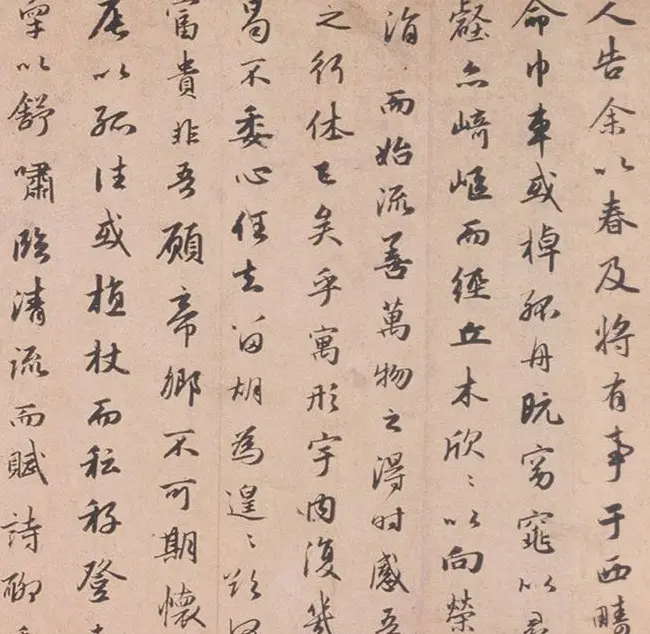 人告余以春及将有事于西疇
命巾車或棹孤舟既窈窕以尋
壑亦崎嶇而經丘木欣〻以向榮
涓而始流善萬物之得时感吾
之行休已矣乎寓形宇内復幾
曷不委心任去留胡為遑〻欲何
富貴非吾願帝鄉不可期懷
辰以孤往或植杖而耘耔登東
皋以舒嘯臨清流而賦詩聊乘